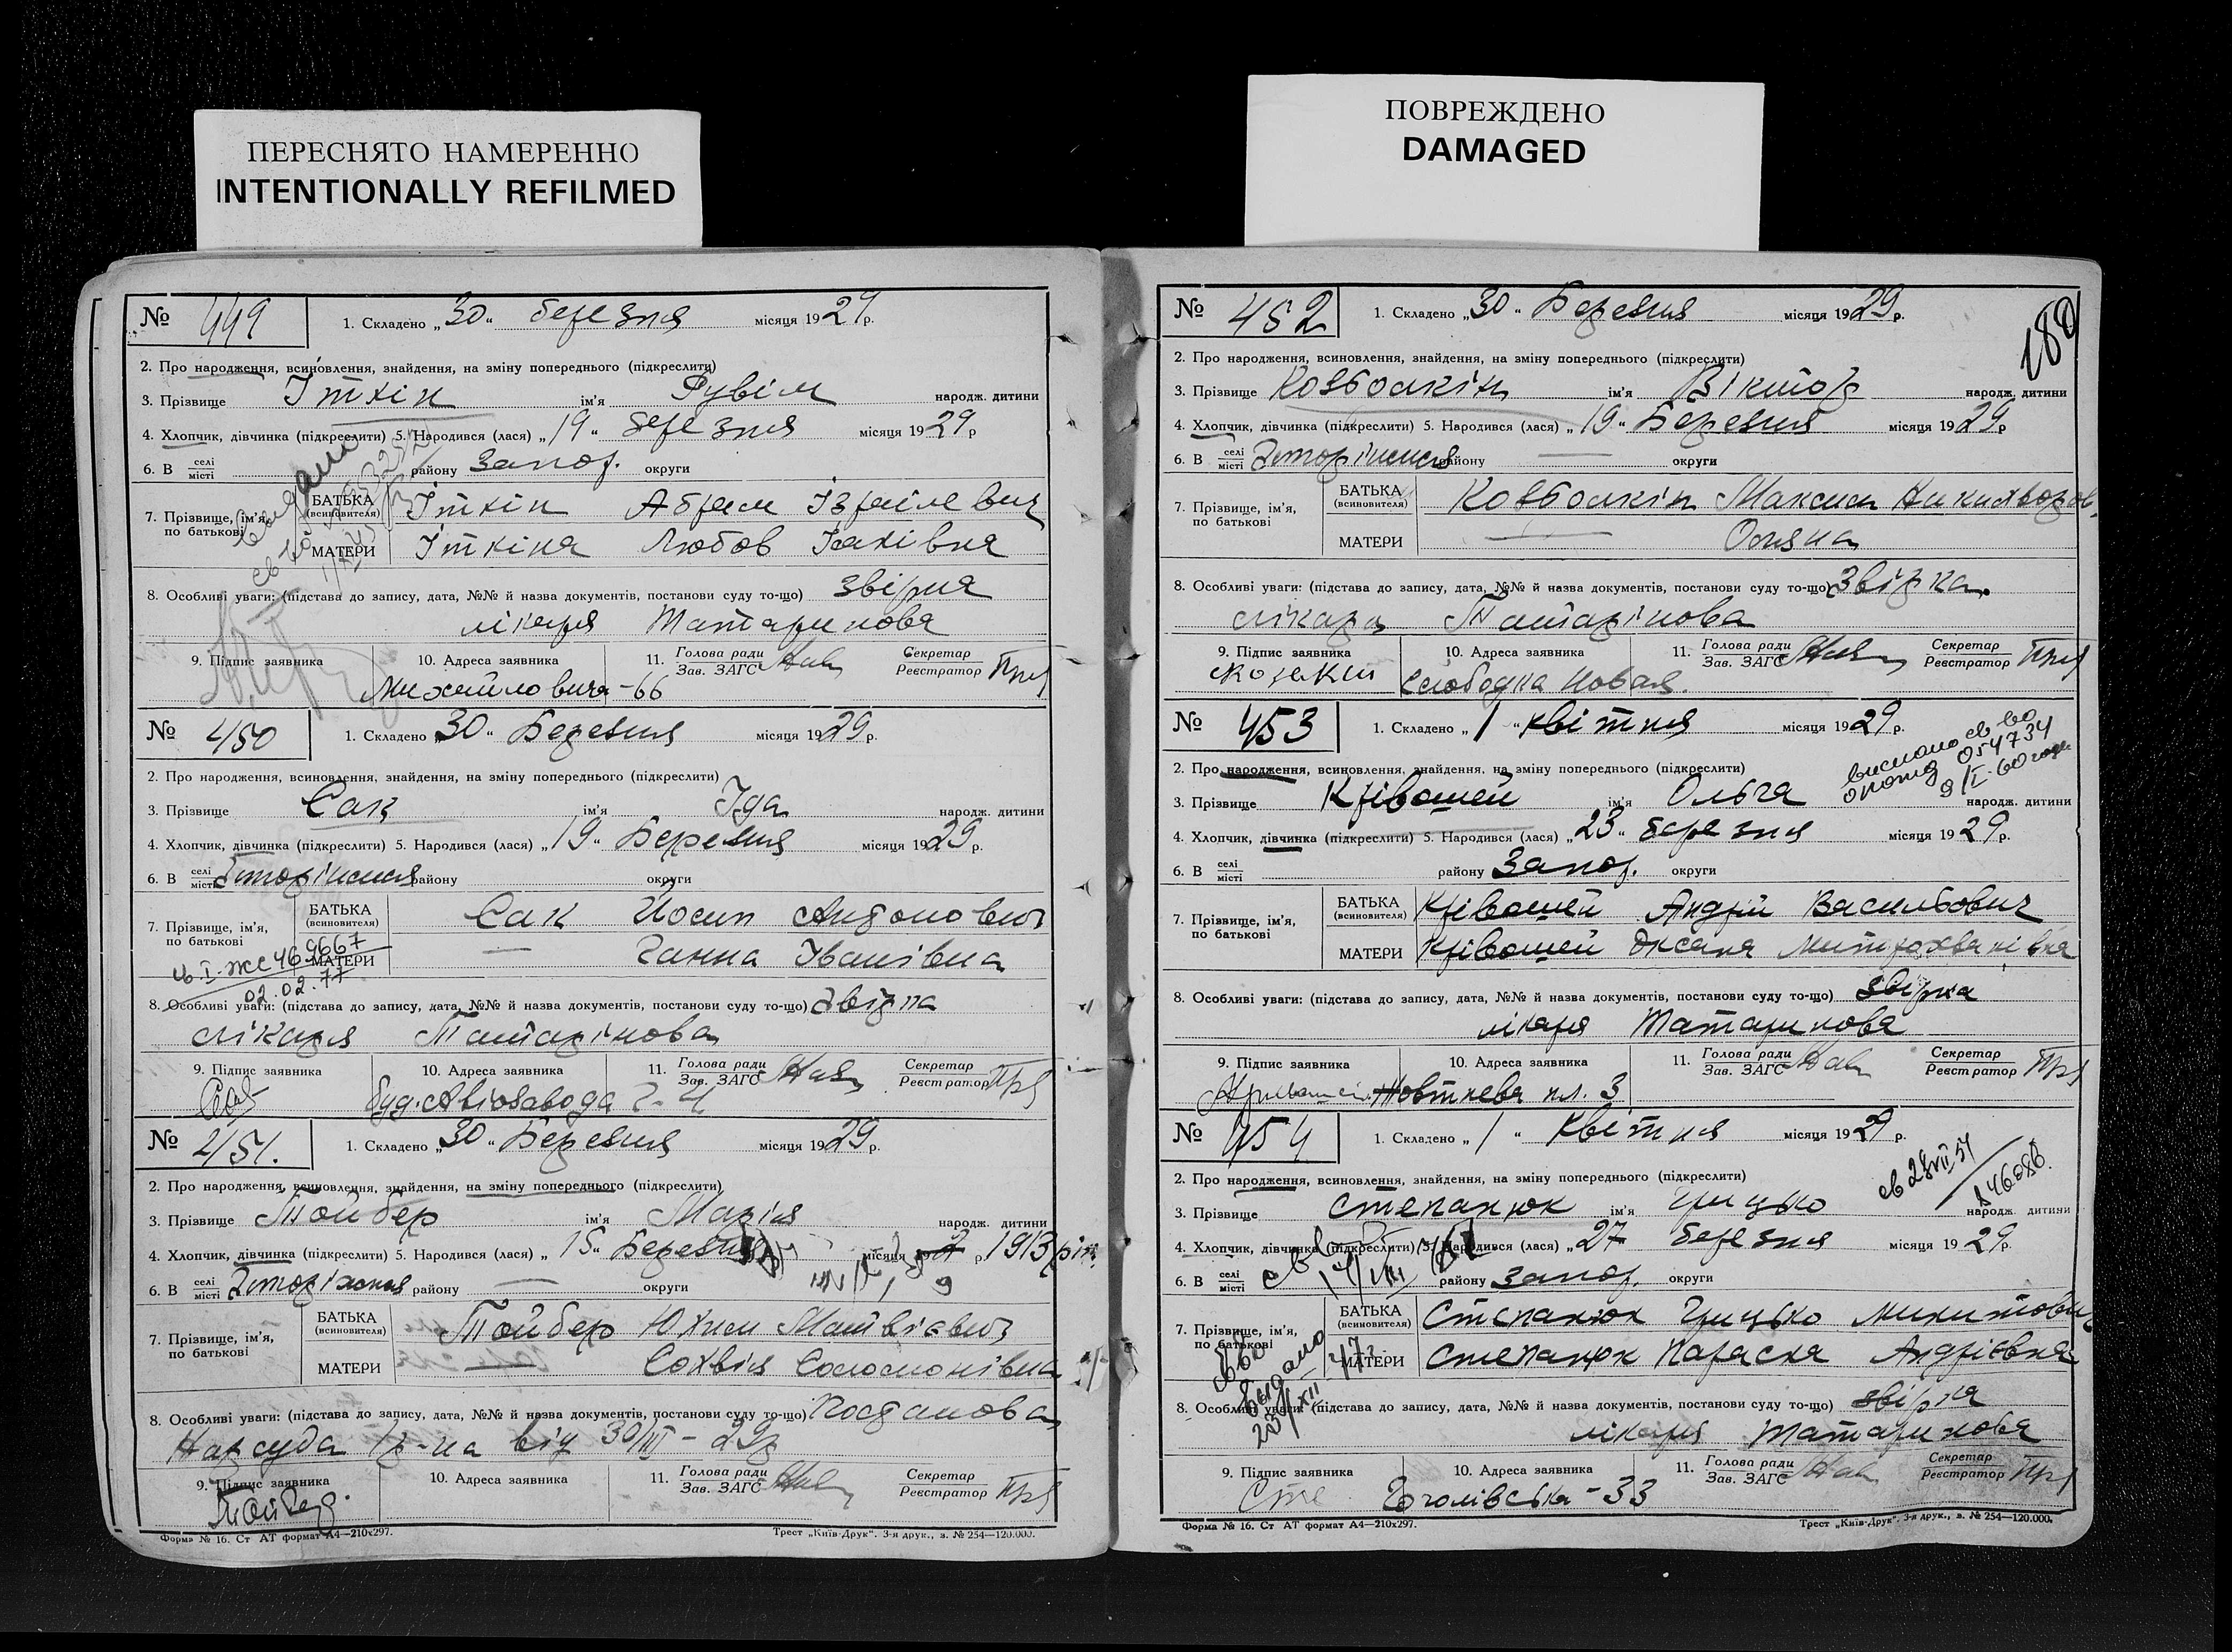 ПЕРЕСНЯТО НАМЕРЕННО
INTENTIONALLY REFILMED
ПОВРЕЖДЕНО
DAMAGED
№ 449 1. Складено „30“ березня місяця 1929 р.
2. Про народження, всиновлення, знайдення, на зміну попереднього (підкреслити)
3. Прізвище Іткін ім'я Рувім народж. дитини
4. Хлопчик, дівчинка (підкреслити) 5. Народився (лася) „19“ березня місяця 1929 р
6. В селі місті району Запор. округи
7. Прізвище, ім'я, по батькові БАТЬКА (всиновителя) Іткін Абрам Ізраілевич
МАТЕРИ Іткіна Любов Ісаківна
8. Особливі уваги: (підстава до запису, дата, №№ й назва документів, постанови суду то-що) звірка
лікаря Татаринова
9. Підпис заявника 10. Адреса заявника 11. Голова ради Зав. ЗАГС Секретар Реєстратор
Михайловича - 66
№ 450 1. Складено „30“ Березня місяця 1929 р.
2. Про народження, всиновлення, знайдення, на зміну попереднього (підкреслити)
3. Прізвище Сак ім'я Іда народж. дитини
4. Хлопчик, дівчинка (підкреслити) 5. Народився (лася) „19“ Березня місяця 1929 р.
6. В селі місті району округи
7. Прізвище, ім'я, по батькові БАТЬКА (всиновителя) Сак Йосип Антонович
МАТЕРИ — Ганна Іванівна
02.02.77
8. Особливі уваги: (підстава до запису, дата, №№ й назва документів, постанови суду то-що) Звірка
лікаря Татарінова
9. Підпис заявника 10. Адреса заявника 11. Голова ради Зав. ЗАГС Секретар Реєстратор
буд. Авіозавода
№ 451. 1. Складено „30“ Березня місяця 1929 р.
2. Про народження, всиновлення, знайдення, на зміну попереднього (підкреслити)
3. Прізвище Тойбер ім'я Марія народж. дитини
4. Хлопчик, дівчинка (підкреслити) 5. Народився (лася) „15“ Березня місяця р. 1913 рік
6. В селі місті району — округи
7. Прізвище, ім'я, по батькові БАТЬКА (всиновителя) Тойбер Юхим Матвієвич
МАТЕРИ — Сохвія Соломонівна
8. Особливі уваги: (підстава до запису, дата, №№ й назва документів, постанови суду то-що) Постанова
Нарсуда 1 р-на від 30/III - 29р
9. Підпис заявника 10. Адреса заявника 11. Голова ради Зав. ЗАГС Секретар Реєстратор
Тойбер
Форма № 16. Ст АТ формат А4—210х297. Трест „Київ-Друк“. 3-я друк., з. № 254—120.000.
180
№ 452 1. Складено „30“ Березня місяця 1929 р.
2. Про народження, всиновлення, знайдення, на зміну попереднього (підкреслити)
3. Прізвище Ковбоакін ім'я Віктор народж. дитини
4. Хлопчик, дівчинка (підкреслити) 5. Народився (лася) „19“ Березня місяця 1929 р
6. В селі місті району — округи
7. Прізвище, ім'я, по батькові БАТЬКА (всиновителя) Максим
МАТЕРИ —
8. Особливі уваги: (підстава до запису, дата, №№ й назва документів, постанови суду то-що) Звірка
лікаря Татарінова
9. Підпис заявника 10. Адреса заявника 11. Голова ради Зав. ЗАГС Секретар Реєстратор
Слободка Новая.
№ 453 1. Складено „1“ квітня місяця 1929 р.
2. Про народження, всиновлення, знайдення, на зміну попереднього (підкреслити)
054734
9/I-60 года
3. Прізвище Крівошей ім'я Ольга народж. дитини
4. Хлопчик, дівчинка (підкреслити) 5. Народився (лася) „23“ березня місяця 1929 р.
6. В селі місті району Запор. округи
7. Прізвище, ім'я, по батькові БАТЬКА (всиновителя) Крівошей Андрій Васильович
МАТЕРИ Крівошей Оксана Митрохванівна
8. Особливі уваги: (підстава до запису, дата, №№ й назва документів, постанови суду то-що) звірка
лікаря Татаринова
9. Підпис заявника 10. Адреса заявника 11. Голова ради Зав. ЗАГС Секретар Реєстратор
Жовтнева пл. 3
№ 454 1. Складено „1“ Квітня місяця 1929 р.
2. Про народження, всиновлення, знайдення, на зміну попереднього (підкреслити)
3. Прізвище Степанюк ім'я Грицько народж. дитини
4. Хлопчик, дівчинка (підкреслити) 5. Народився (лася) „27 березня місяця 1929 р.
6. В селі місті району Запор. округи
7. Прізвище, ім'я, по батькові БАТЬКА (всиновителя) Степанюк Грицько Микитович
МАТЕРИ Степанюк Параска Андріевна
8. Особливі уваги: (підстава до запису, дата, №№ й назва документів, постанови суду то-що) звірка
лікаря Татаринова
9. Підпис заявника 10. Адреса заявника 11. Голова ради Зав. ЗАГС Секретар Реєстратор
Сте Гоголівська - 33
Форма № 16. Ст АТ формат А4—210х297. Трест „Київ-Друк“. 3-я друк., з. № 254—120.000.